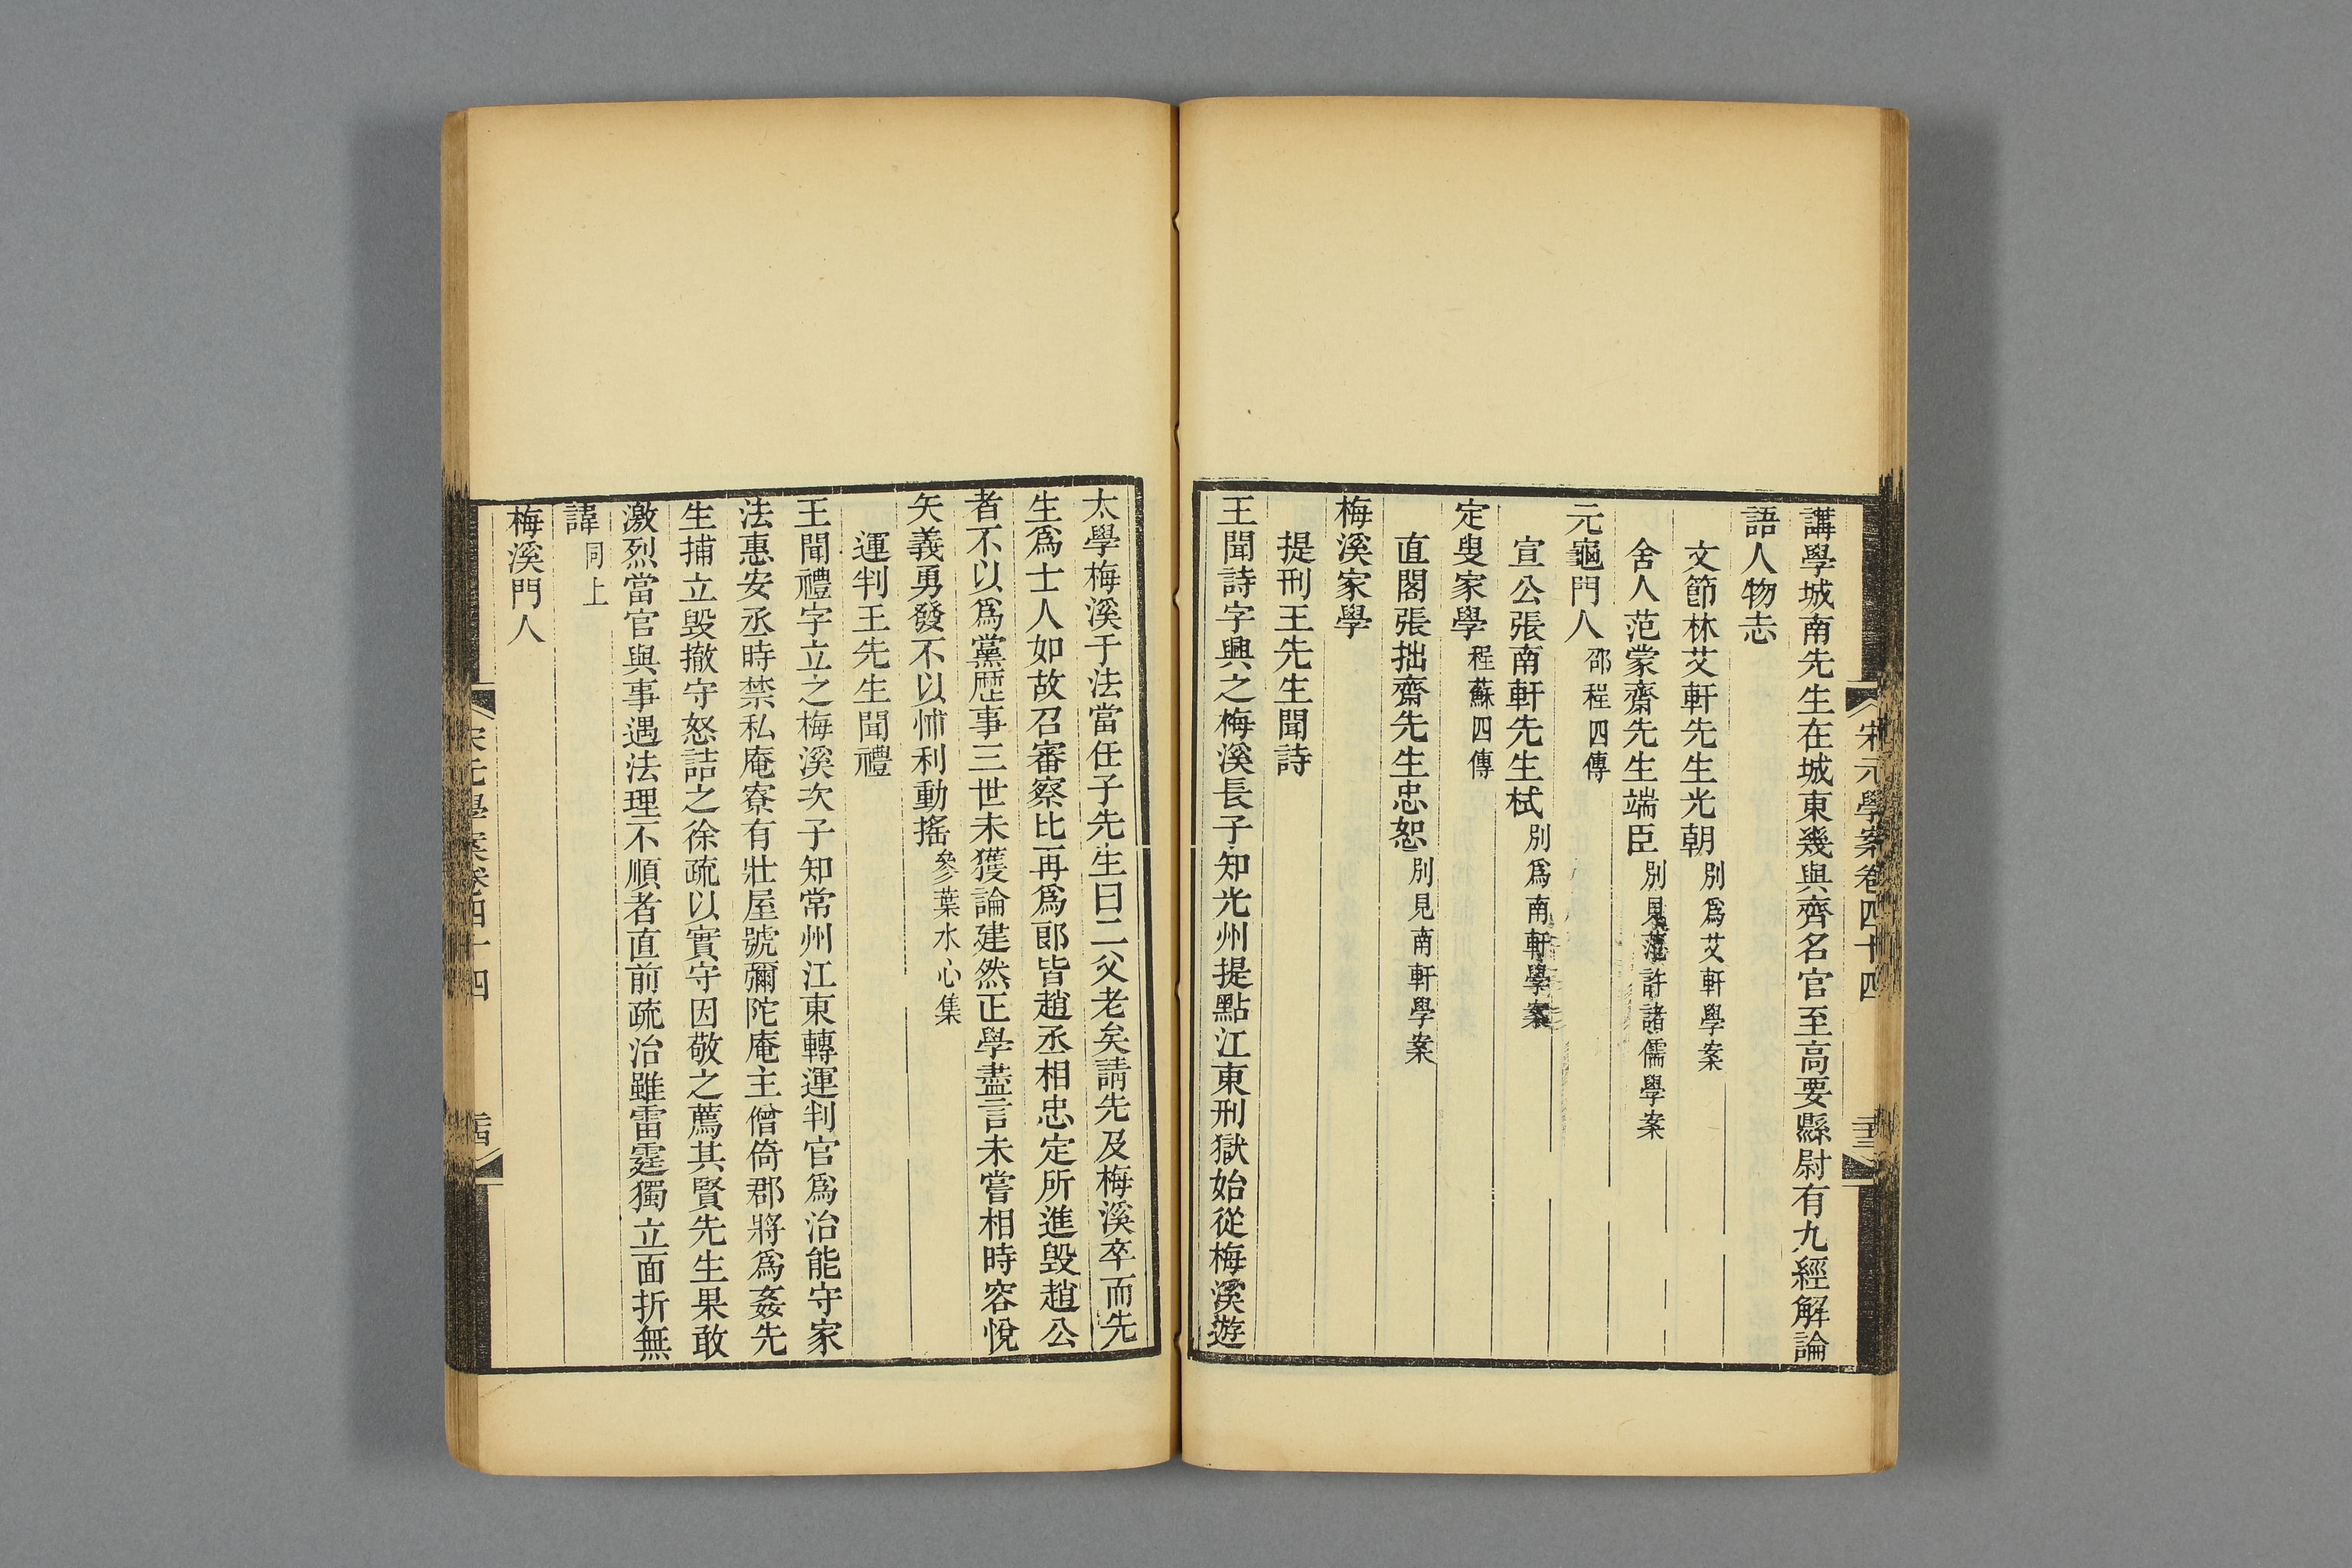 宋元學案卷四十四
講學城南先生在城東幾與齊名官至高要縣尉有九經解論
語人物志
文節林艾軒先生光朝別爲艾軒學案
舍人范蒙齋先生端臣別見范許諸儒學案
元龜門人邵程四傳
宣公張南軒先生栻別爲南軒學案
定叟家學程蘇四傳
直閣張拙齋先生忠恕別見南軒學案
梅溪家學
提刑王先生聞詩
王聞詩字興之梅溪長子知光州提點江東刑獄始從梅溪遊
太學梅溪于法當任子先生曰二父老矣請先及梅溪卒而先
生爲士人如故召審察比再爲郎皆趙丞相忠定所進毀趙公
者不以爲黨歷事三世未獲論建然正學盡言未嘗相時容悅
矢義勇發不以怵利動搖參葉水心集
運判王先生聞禮
王聞禮字立之梅溪次子知常州江東轉運判官爲治能守家
法惠安丞時禁私庵寮有壯屋號彌陀庵主僧倚郡將爲姦先
生捕立毀撤守怒詰之徐疏以實守因敬之薦其賢先生果敢
激烈當官與事遇法理不順者直前疏治雖雷霆獨立面折無
諱同上
梅溪門人
宋元學案卷四十四